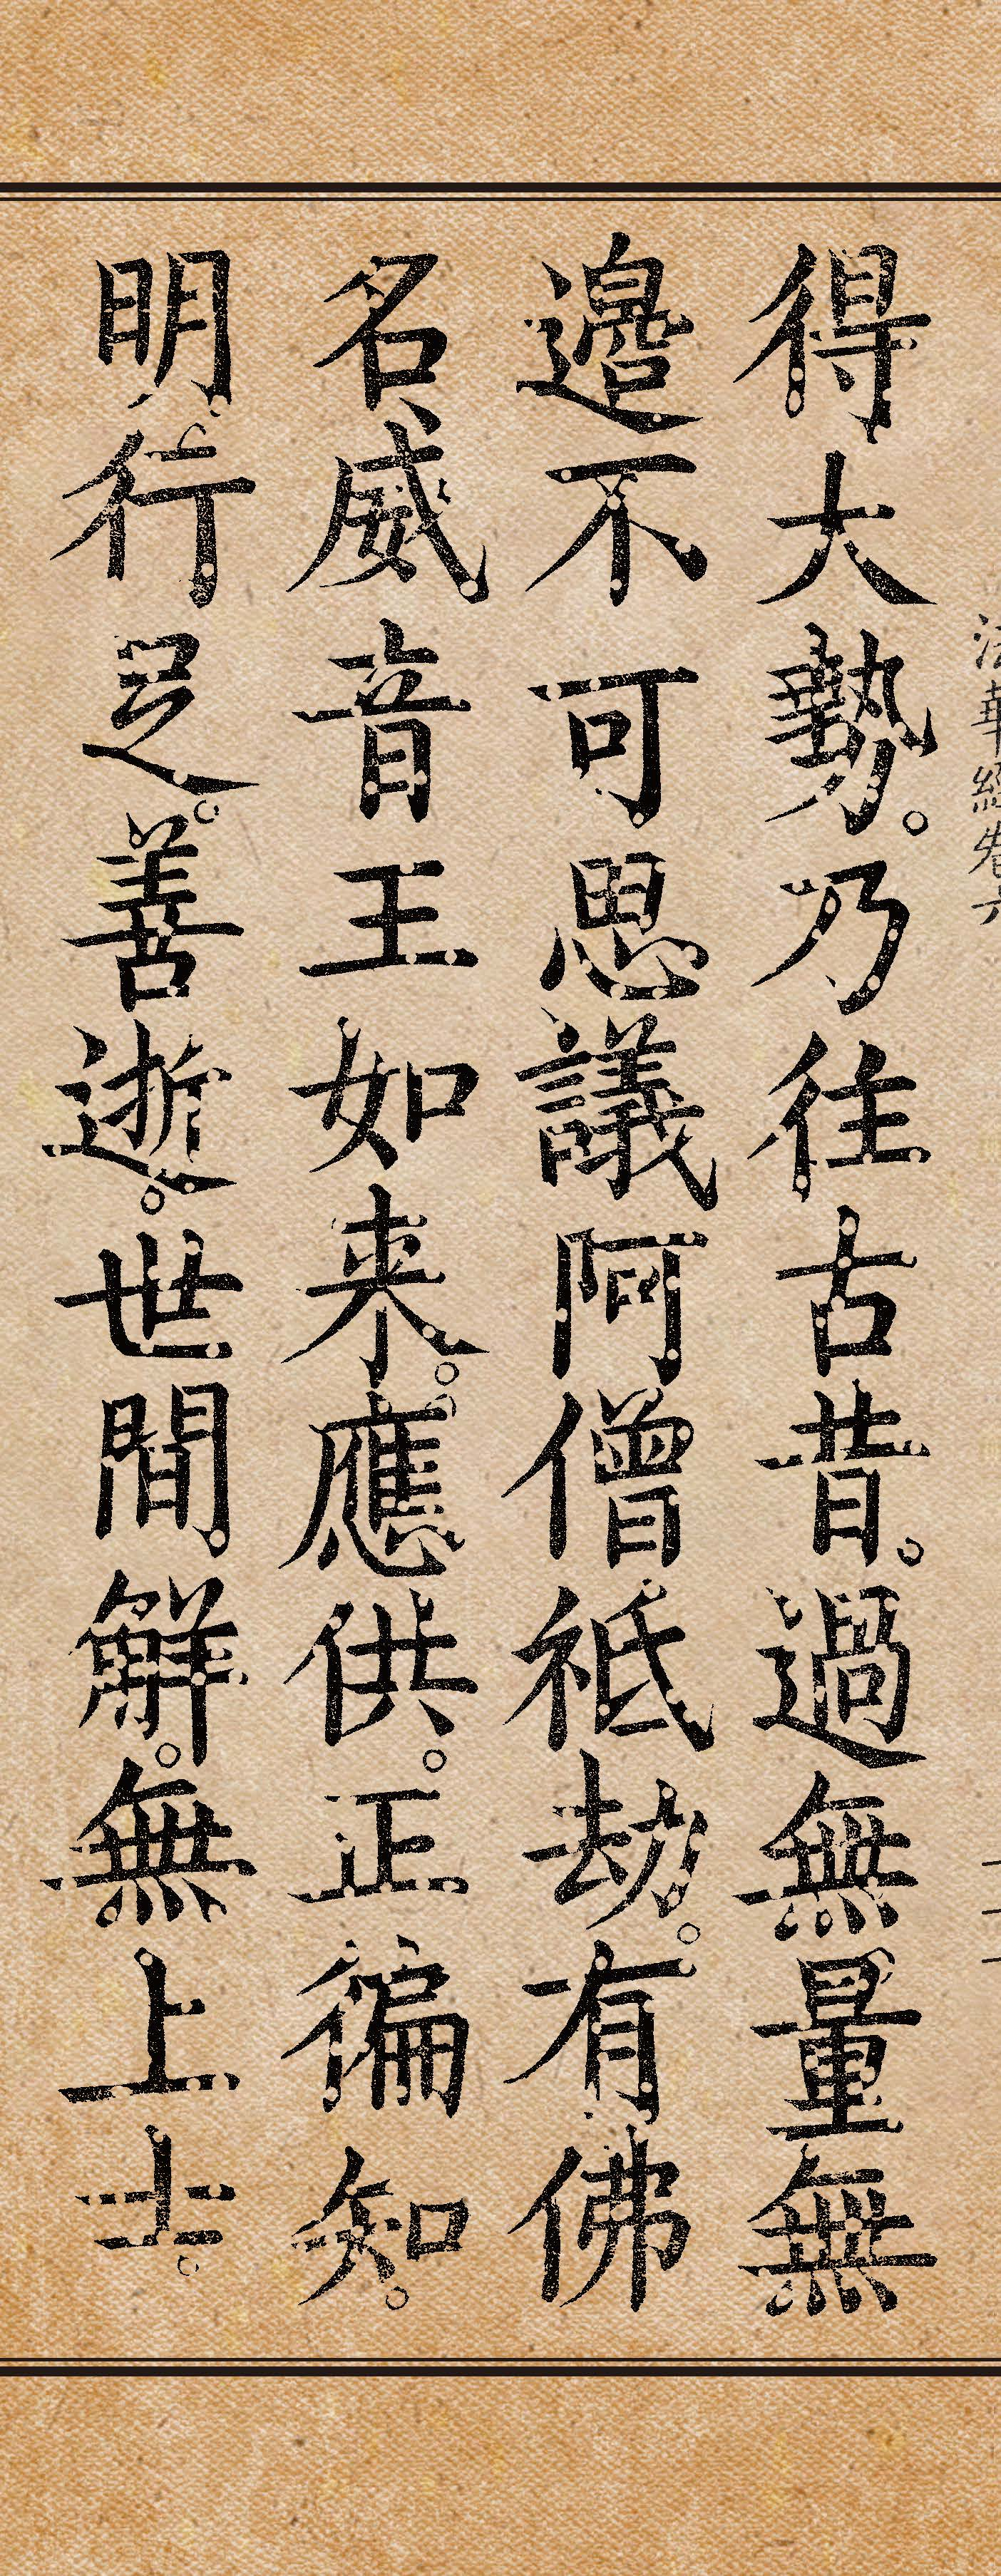 法華經卷六
得大勢。乃往古昔。過無量無
邊不可思議阿僧祇劫。有佛
名威音王如来。應供。正徧知。
明行足。善逝。世間解。無上士。